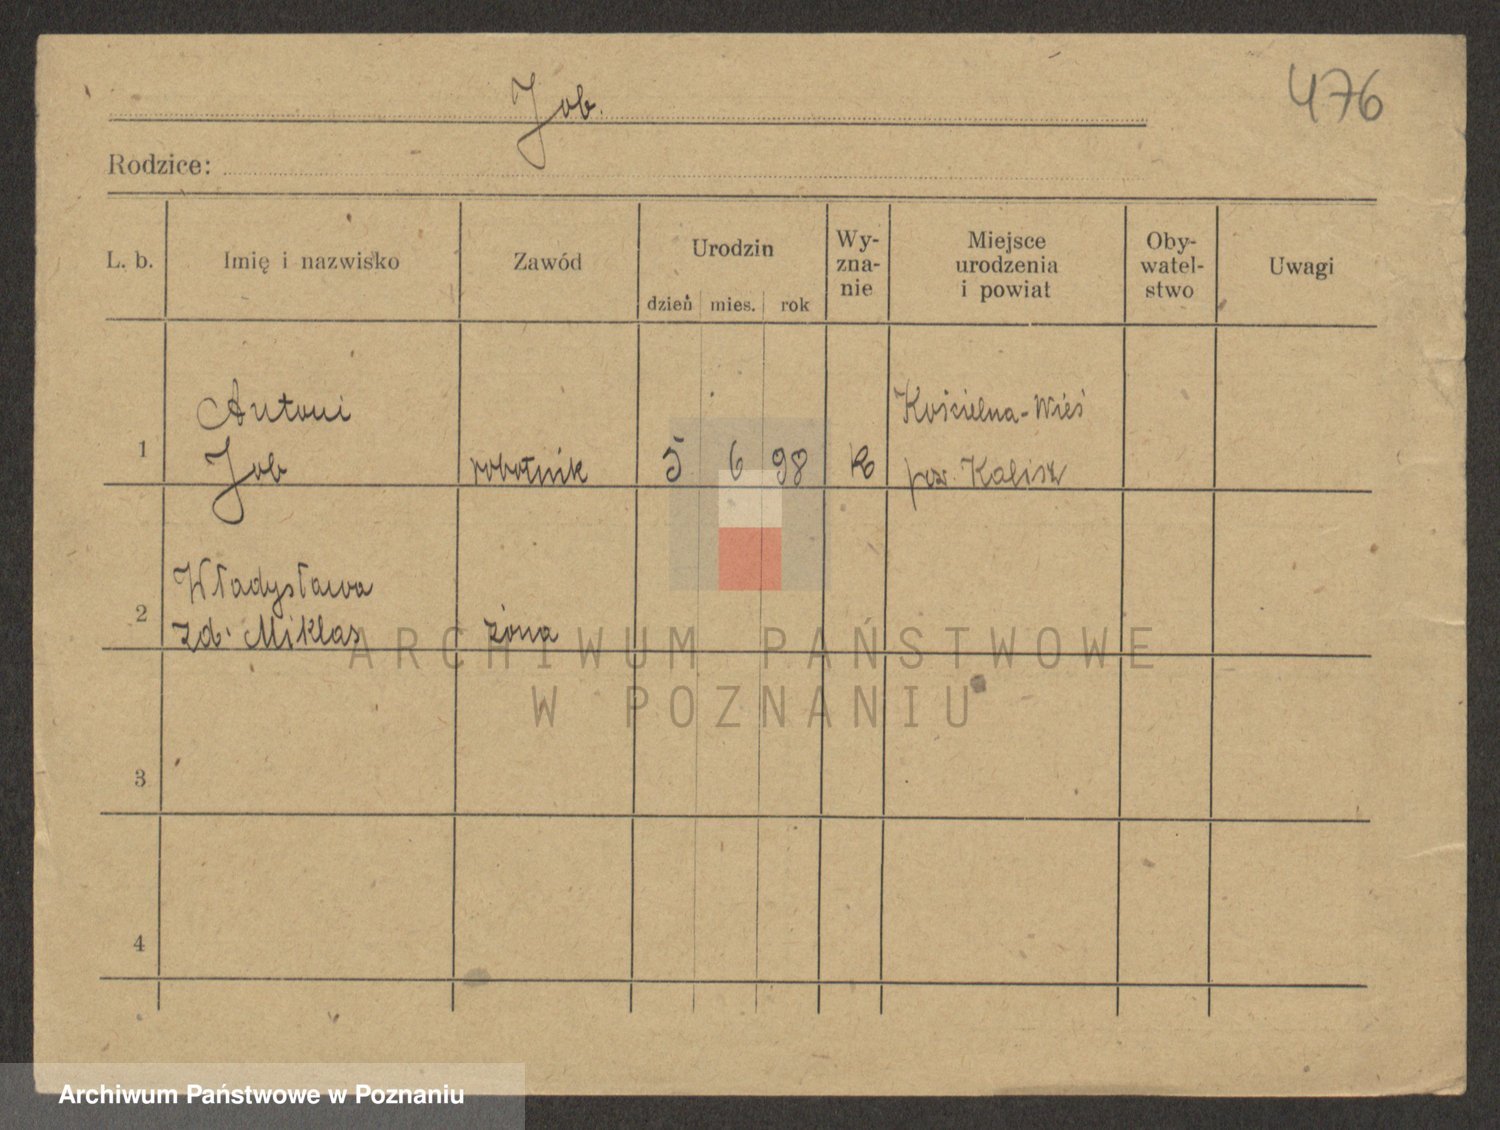 476
Job.
Rodzice:
L. b.
Imię i nazwisko
Zawód
Urodzin
dzień
mies.
rok
Wy-
zna-
nie
Miejsce
urodzenia
i powiat
Oby-
watel-
stwo
Uwagi
1
Antoni
Job
robotnik
5
6
98
Kościelna-Wieś
pow. Kalisz
2
Władysława
zd. Miklas
żona
ARCHIWUM PAŃSTWOWE
W POZNANIU
3
4
Archiwum Państwowe w Poznaniu